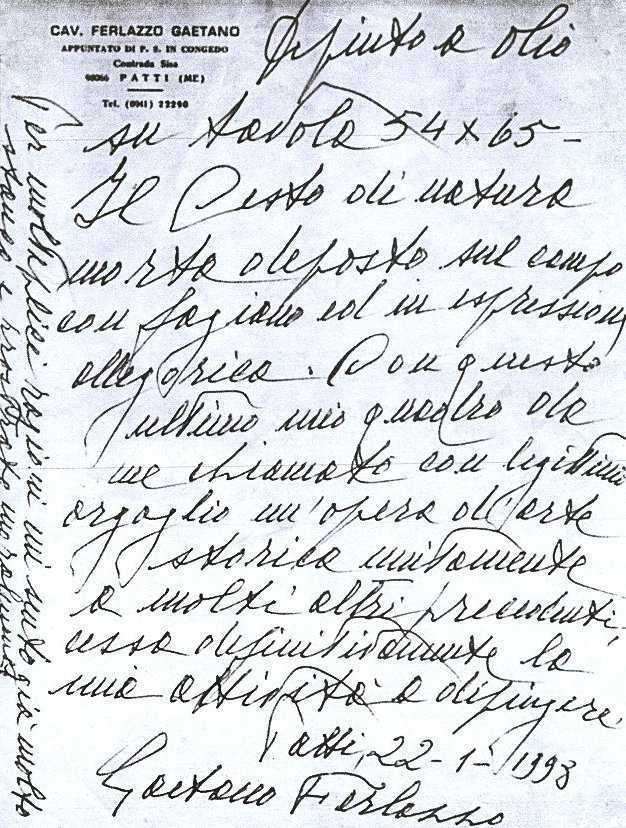 CAV. FERLAZZO GAETANO
APPUNTATO DI P. S. IN CONGEDO
Contrada Sisa
98066 PATTI (ME)
Tel. (0941) 22290
Dipinto a olio
su tavola 54x65-
Il Cesto di natura
morta deposto sul campo
con fagiano ed in espressione
allegorica. Con questo
ultimo mio quadro da
me chiamato con legittimo
orgoglio un'opera d'arte
storica unitamente
a molti altri precedenti,
cessa definitivamente la
mia attività a dipingere
Patti, 22-1-1998
Gaetano Ferlazzo
Per molteplici ragioni mi sento già molto
stanco e prostrato moralmente